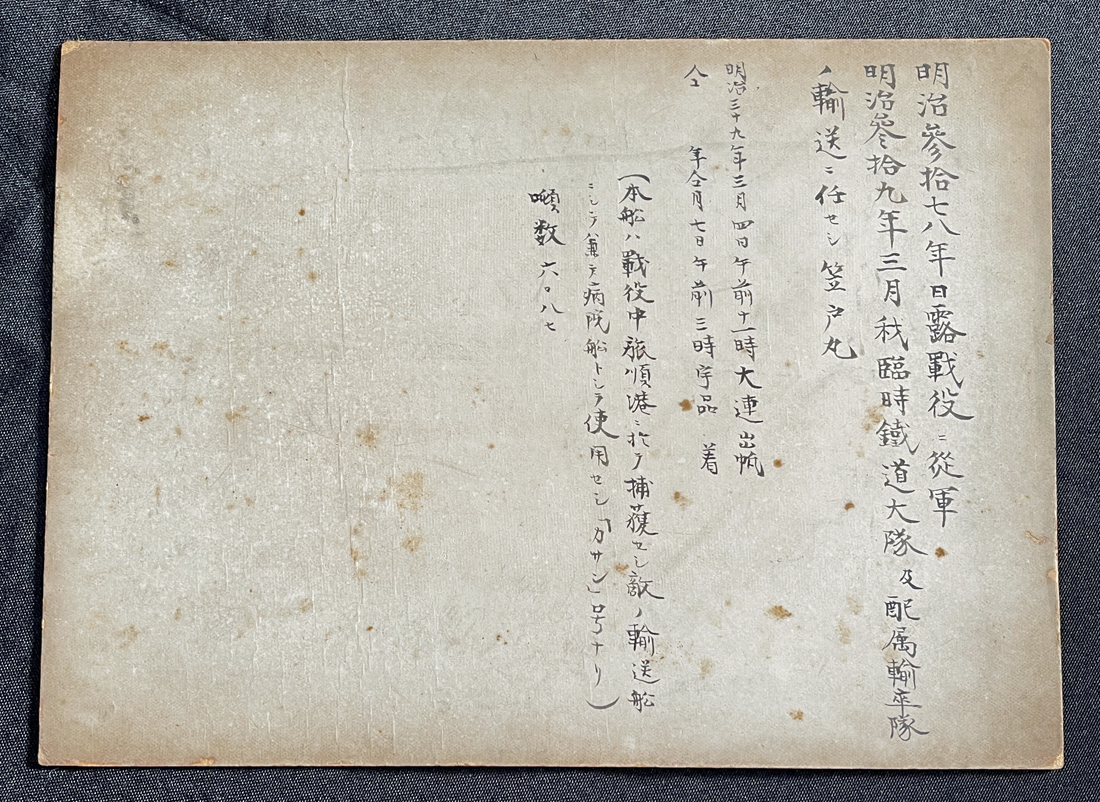 明治參拾七八年日露戰役ニ從軍
明治參拾九年三月我臨時鐵道大隊及配属輸卒隊
ノ輸送ニ任セシ笠戸丸
明治三十九年三月四日午前十一時大連出帆
仝　年仝月七日午前三時宇品着
(本船ハ戰役中旅順港ニ於テ捕獲セシ敵ノ輸送船
ニシテ兼テ病院船トシテ使用セシ「カサン」号ナリ)
噸数六〇八七